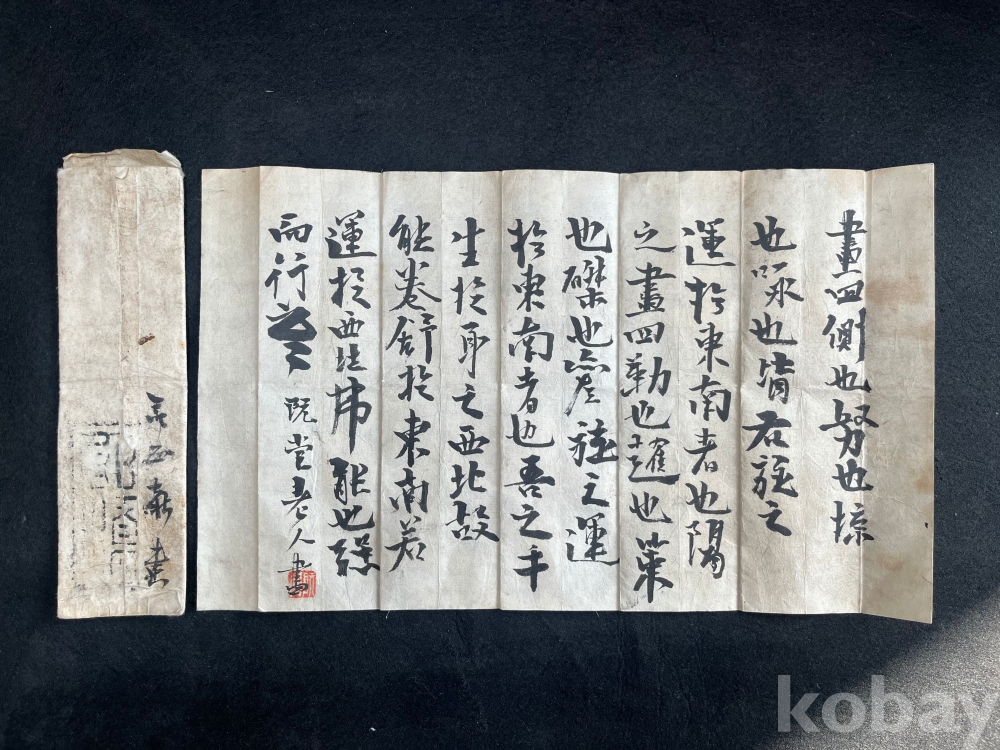 畫四側也努也掠
也啄也皆右旋之
運於東南者也
之畫四勒也趯也策
也磔也旋之運
於東南者也吾之手
生於身之西北故
能卷舒於東南若
運於西北弗能也
而行
阮堂老人書
書
kobay